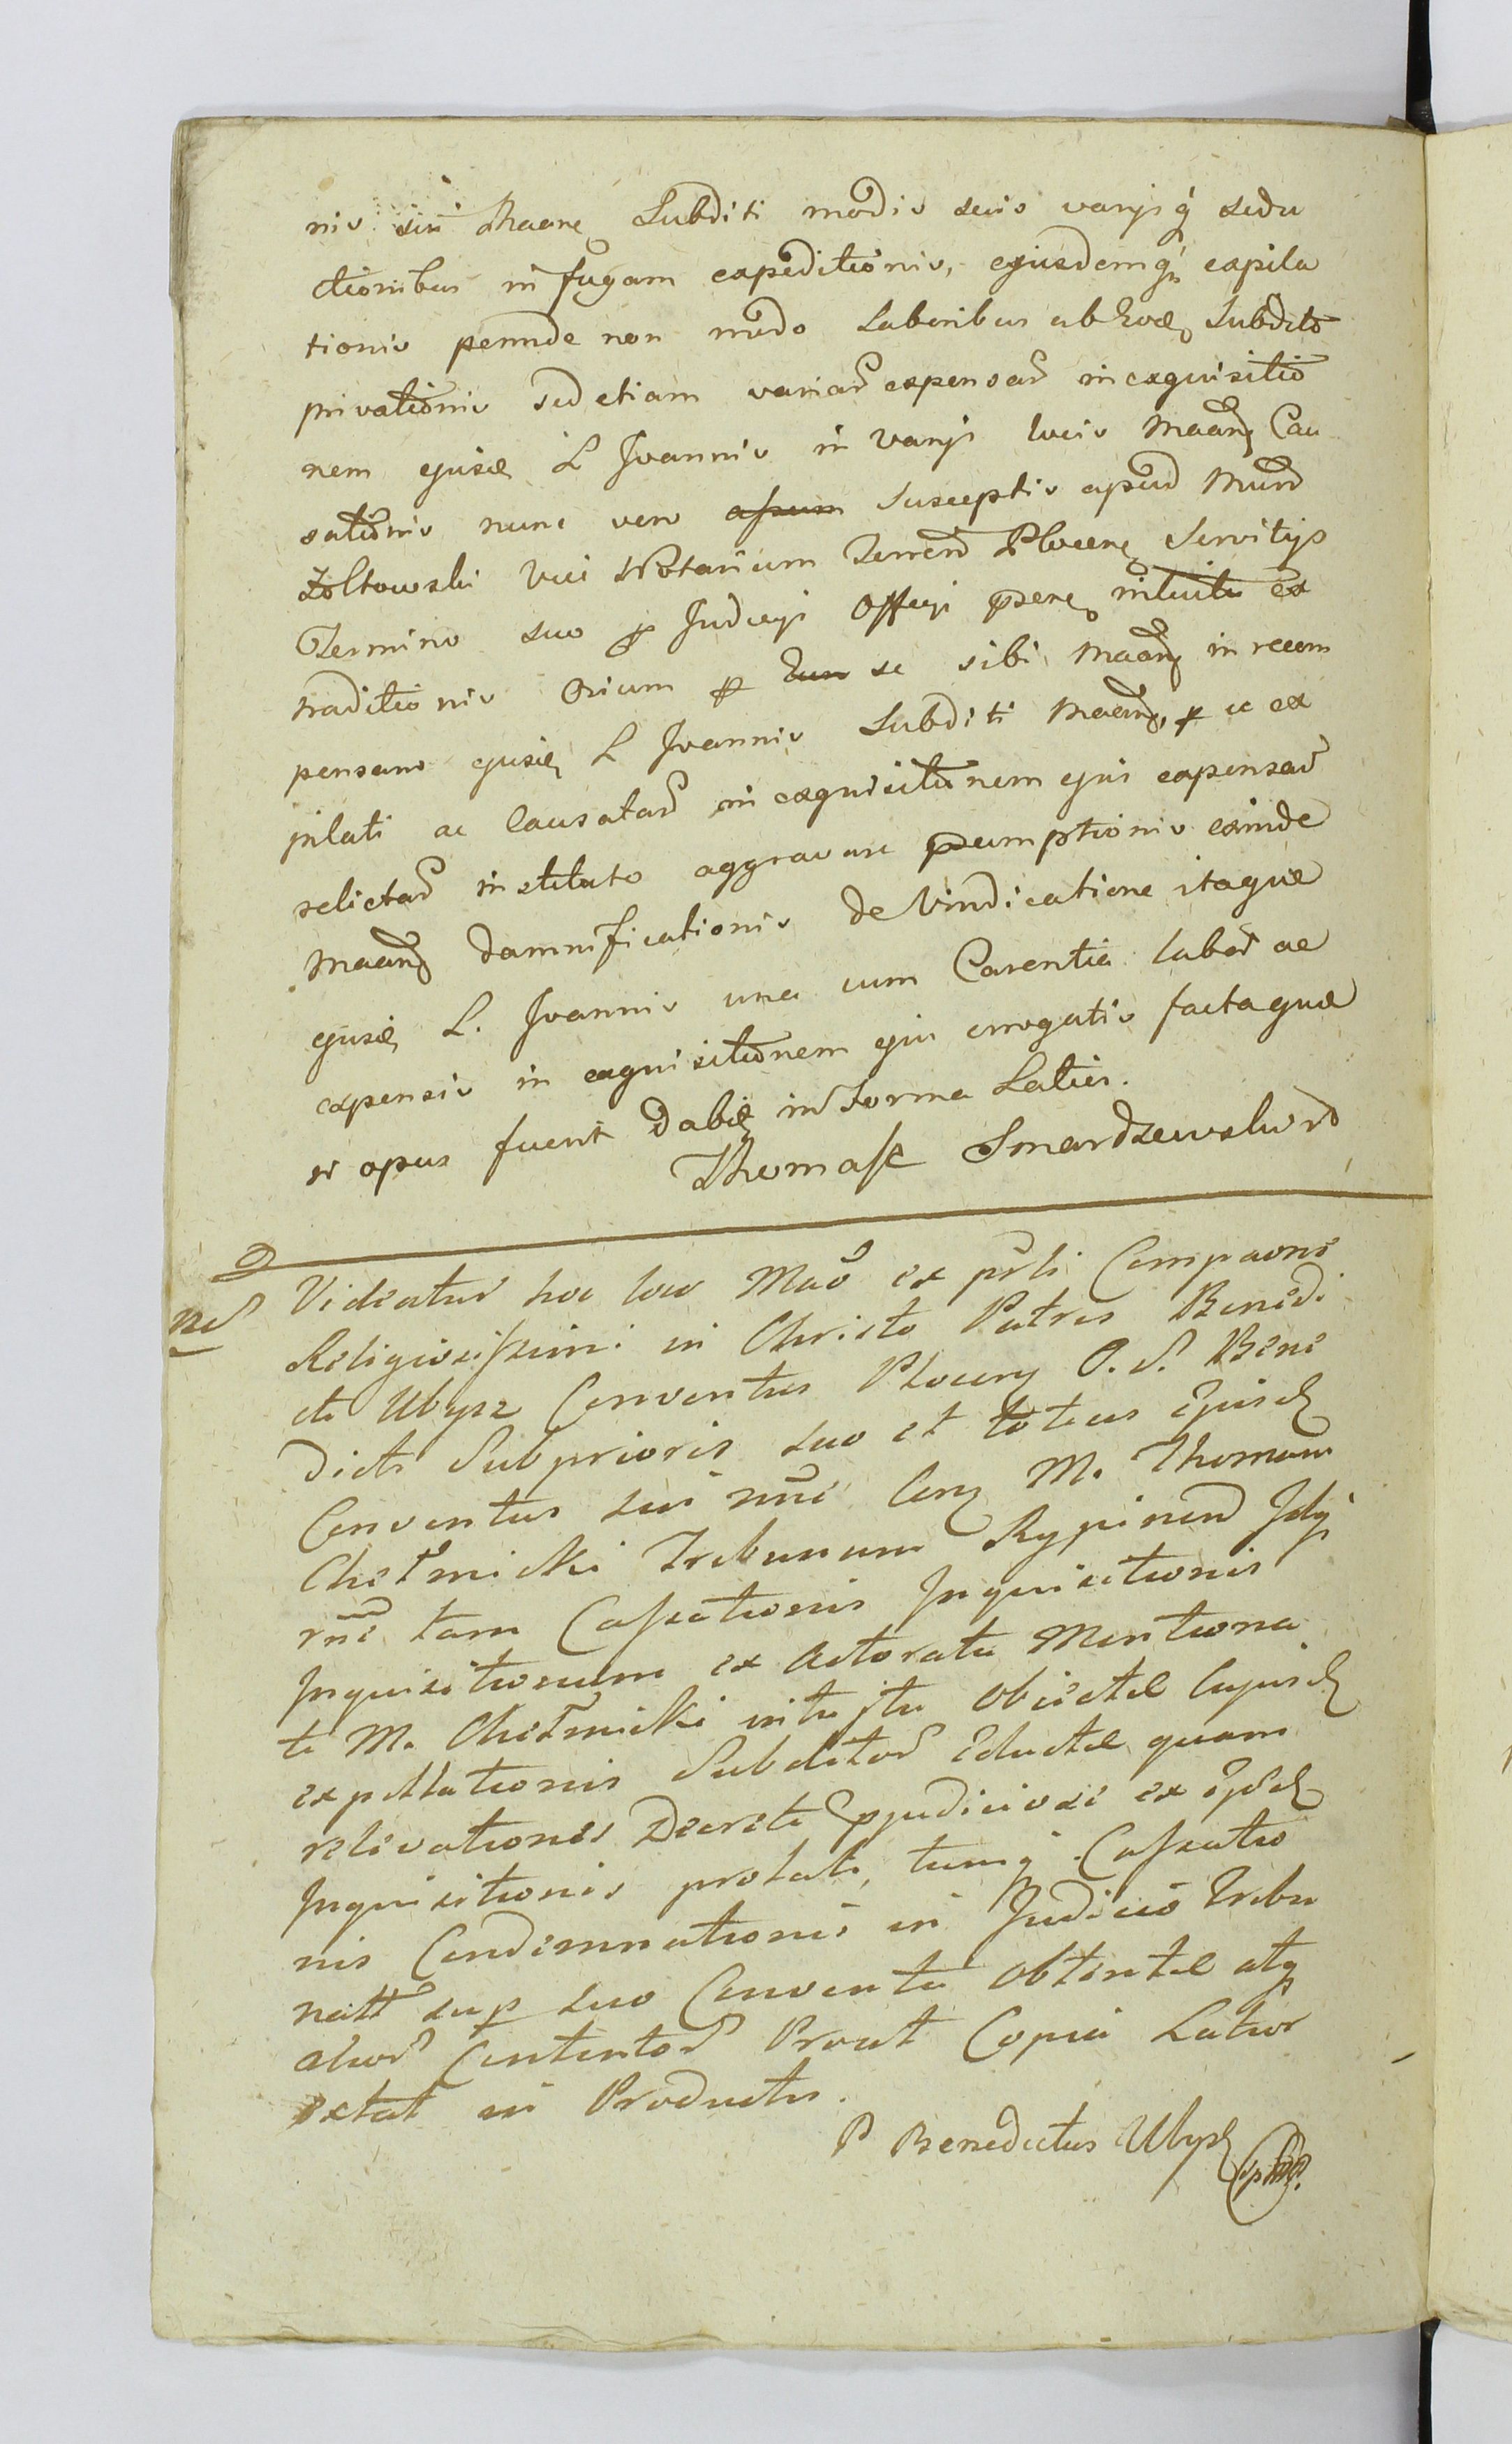 nis sui Maane Subditi modis suis varijsq sedu
ctionibus in fugam expeditionis, ejusdemq expila
tionis perinde non modo Laboribus ab Subdito
privationis sed etiam variar expensar in exquisitio
nem ejusd L Joannis in varijs locis Maan Cau
sationis nunc vero susceptis apud Mund
Żołtowski Vice Notarium Terrend Plocen Servitijs
Termino suo p Judicij Officij psens intuitu ex
traditionis p se sibi Maan in recom
pensam ejusd L Joannis Subditi Maan, ac ex
pilati ac Causatar in exquisitionem ejus expensar
relictar instituto aggravare psumptionis exinde
Maan damnificationis de Vindicatione itaque
ejusd L. Joannis una cum Carentia labor ac
expensis in exquisitionem ejus errogatis factaque
si opus fuerit Dabit in Forma Latius.
Thomasz Smardzewski
Nd Videatur hoc loco Mao ex prli Compaone
Religiosissimi in Christo Patris Benedi
cti Ubysz Conventus Plocen O. S. Bene
dicti Subprioris suo et totius Ejusd
Conventus sui nne Con M. Thomam
Chełmicki Tribunum Rypinend
rne tam Cassationis Inquisitionis
Inquisitionum ex Actoratu Mentiona
ti M. Chełmicki intuitu Objectæ Cujusd
expillationis Subditor Eductæ quam
relevationis Decreti pjudiciose ex Ejusd
Inquisitionis prolati, tumq Cassatio
nis Condemnationis in Judicio Tribu
natt sup suo Conventu Obtentæ atq
alior Contentor Prout Copia Latior
extat in Productu.
P Benedictus Ubysz